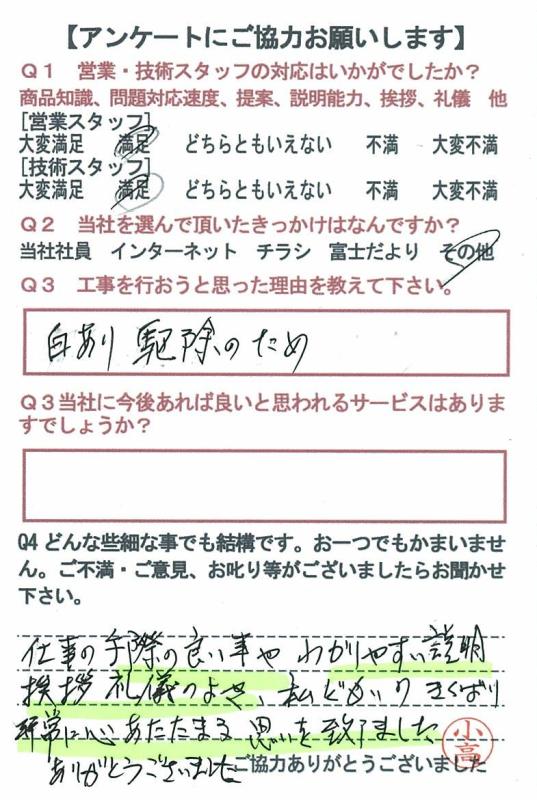 【アンケートにご協力お願いします】
Q1 営業・技術スタッフの対応はいかがでしたか？
商品知識、問題対応速度、提案、説明能力、挨拶、礼儀 他
[営業スタッフ]
大変満足 満足 どちらともいえない 不満 大変不満
[技術スタッフ]
大変満足 満足 どちらともいえない 不満 大変不満
Q2 当社を選んで頂いたきっかけはなんですか？
当社社員 インターネット チラシ 富士だより その他
Q3 工事を行おうと思った理由を教えて下さい。
白あり駆除のため
Q3当社に今後あれば良いと思われるサービスはありま
すでしょうか？
Q4 どんな些細な事でも結構です。お一つでもかまいませ
ん。ご不満・ご意見、お叱り等がございましたらお聞かせ
下さい。
仕事の手際の良い事や わかりやすい説明
挨拶 礼儀のよさ、私ども きくばり
非常に心あたたまる 思いを致しました
ありがとうございました
ご協力ありがとうございました
小高